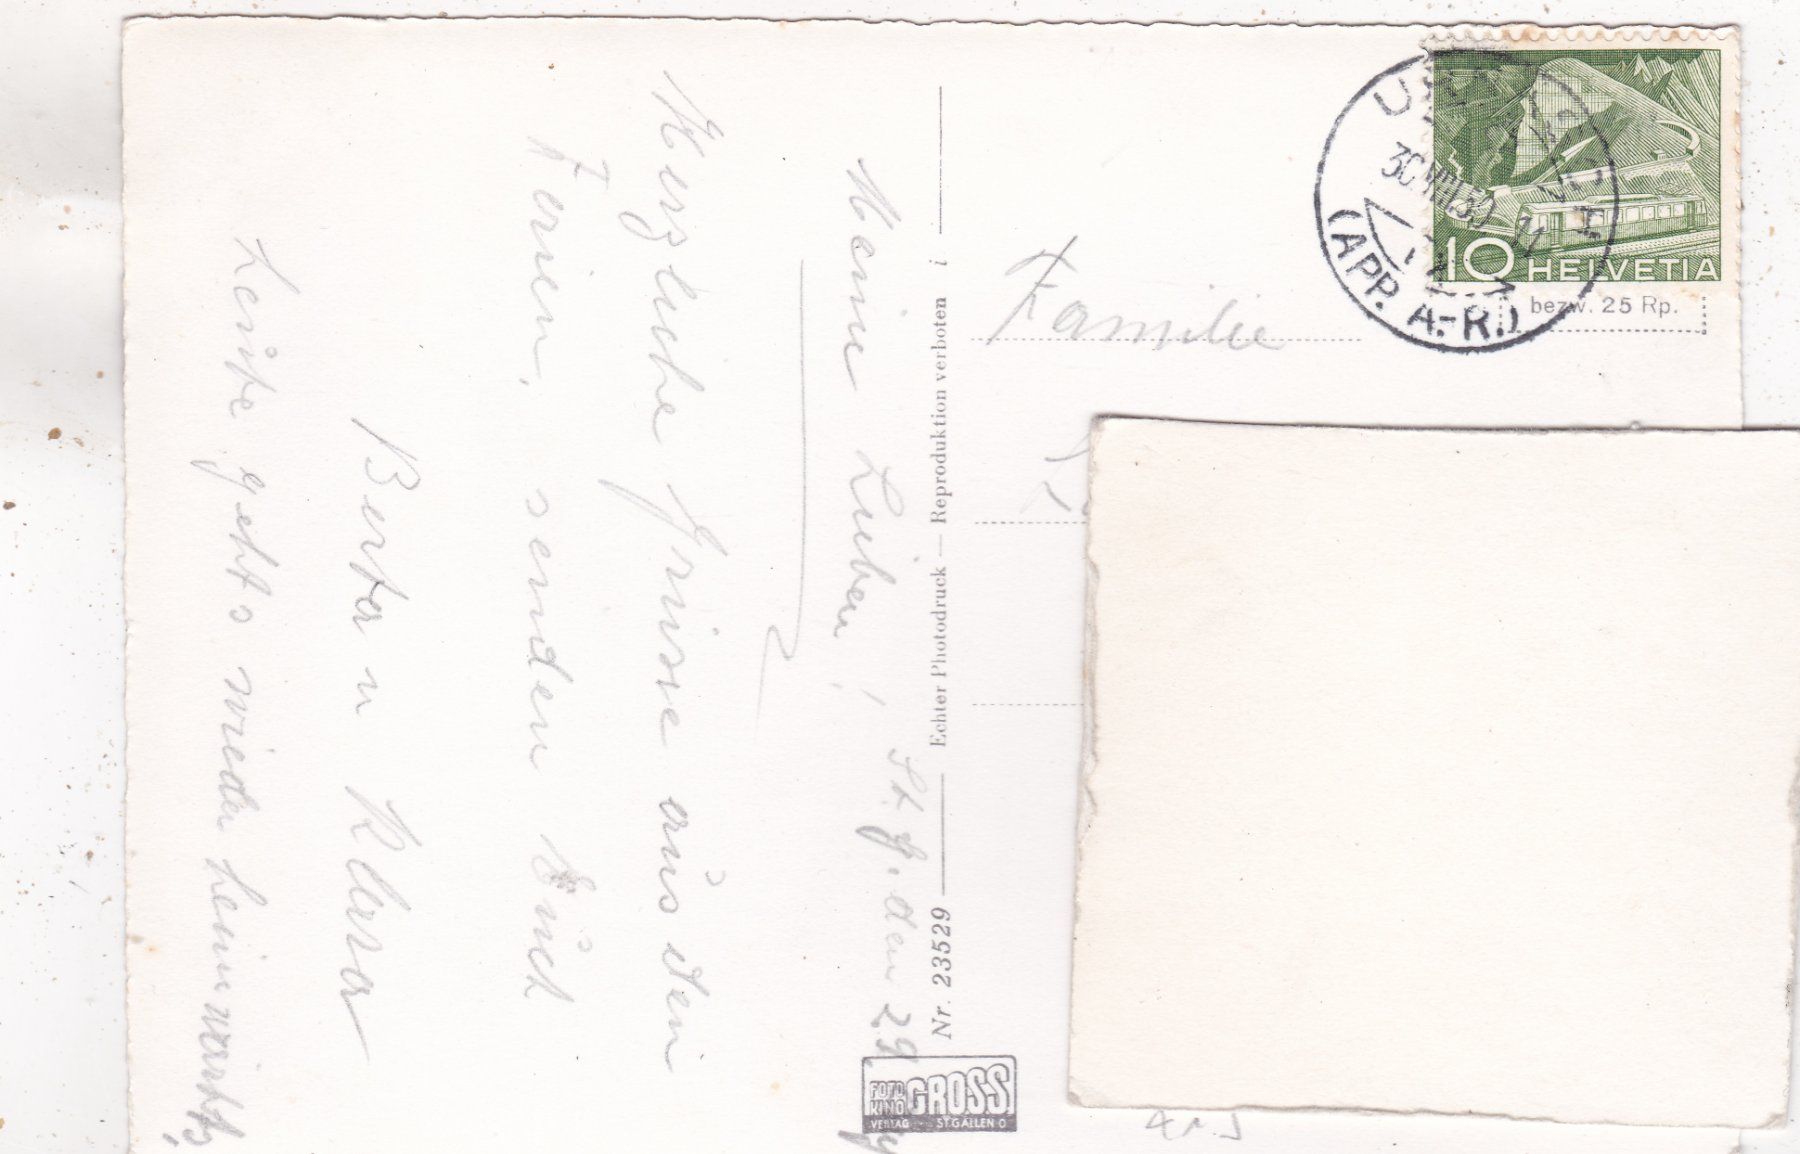 St. G. den 29.
Meine Lieben!
Herzliche Grüsse aus den
Ferien, senden Euch
Berta u Klara
Leider gehts wieder heimwärts!
Nr. 23529 — Echter Photodruck — Reproduktion verboten i
FOTO KINO GROSS
VERLAG ST.GALLEN O
30.VIII.50 11
(APP. A.-R.)
10 HELVETIA
bezw. 25 Rp.
Familie